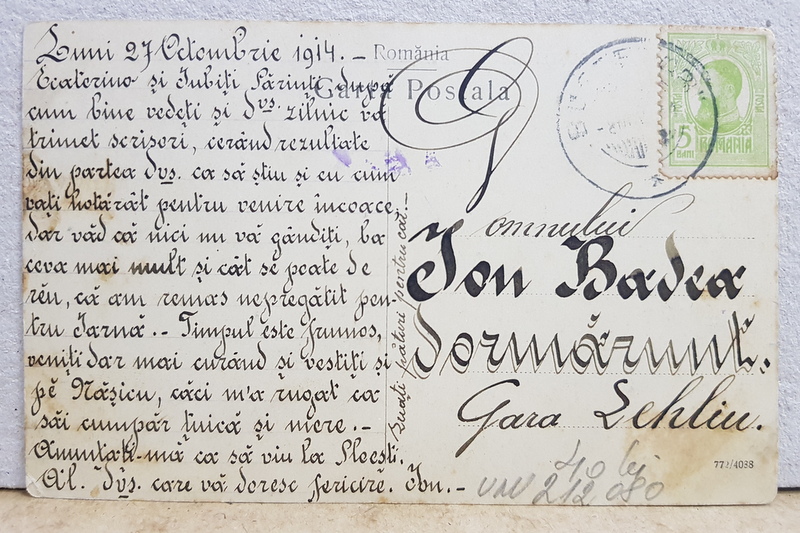 Luni 27 Octombrie 1914. –
Ecaterino și Iubiți Părinți după
cum bine vedeți și dvs zilnic vă
trimet scrisori, cerând rezultate
din partea dvs. ca să știu și eu cum
vați hotărât pentru venire încoace,
dar văd că nici nu vă gândiți, ba
ceva mai mult și cât se poate de
rĕu, că am remas nepregătit pen-
tru Iarnă. – Timpul este frumos,
veniți dar mai curând și vestiți și
pĕ Nășicu, căci m'a rugat ca
săi cumpăr țuică și mere. –
Anuntați-mă ca să viu la Ploești.
Al. Dvs. care vă doresc fericire. Ion. –
Luați pături pentru cât. –
România
Carta Postala
5
BANI
ROMANIA
POSTA
Domnului
Ion Badea
Dormărunt.
Gara Lehliu.
772/4038
40 lei
212 080